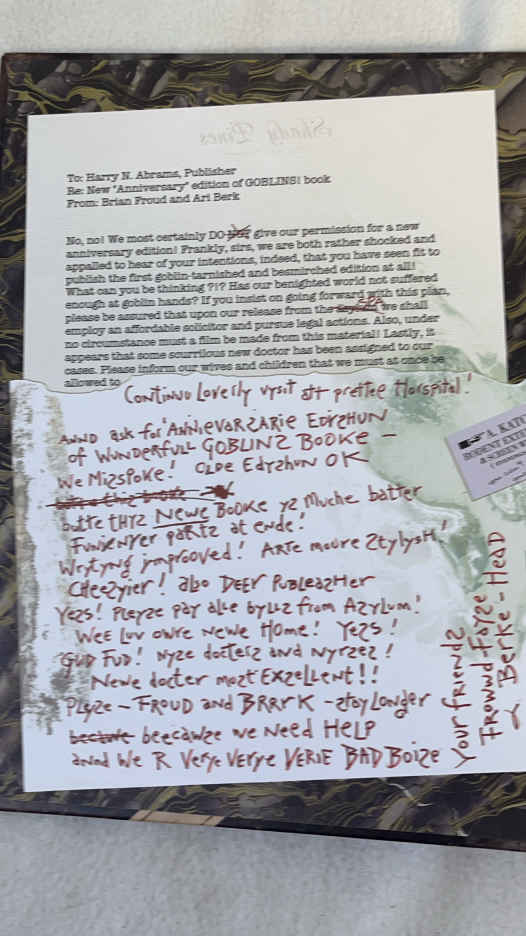 Shady Pines
To: Harry N. Abrams, Publisher
Re: New "Anniversary" edition of GOBLINS! book
From: Brian Froud and Ari Berk
No, no! We most certainly DO not give our permission for a new
anniversary edition! Frankly, sirs, we are both rather shocked and
appalled to hear of your intentions, indeed, that you have seen fit to
publish the first goblin-tarnished and besmirched edition at all!
What can you be thinking ?!? Has our benighted world not suffered
enough at goblin hands? If you insist on going forward with this plan,
please be assured that upon our release from the we shall
employ an affordable solicitor and pursue legal actions. Also, under
no circumstance must a film be made from this material! Lastly, it
appears that some scurrilous new doctor has been assigned to our
cases. Please inform our wives and children that we must at once be
allowed to
Continuu Loverly vysit att prettee Horspital!
ANND ask for ANNieVARZARie EDYZHUN
of WUNDERFULL GOBLINZ BOOKE –
We MizSPoKe! OLDe Edyzhun OK
butte tHYZ Newe BOOKe yz Muche batter
FunyeNyer partz at ende!
Wrytyng improoved! ARTe moore ZtylysH!
CHeezyier! alzo DEEr PUBLeazHer
Yezs! PLeyze pay alle byllz from AzyLum!
Wee Luv owre Newe Home! Yezs!
GUD FUD! Nyze docterz and Nyrzez!
Newe docter mozt ExzeLLent!!
PLeyze – FROUD and BRRrK – ztay Longer
becawe beecawze we Need HeLP
annd we R Verye Verye VERIE BAD BOize
Your Friendz
Frowwd Fayze
y Berke-Head
A. KATC
RODENT EXT
& SCREEN